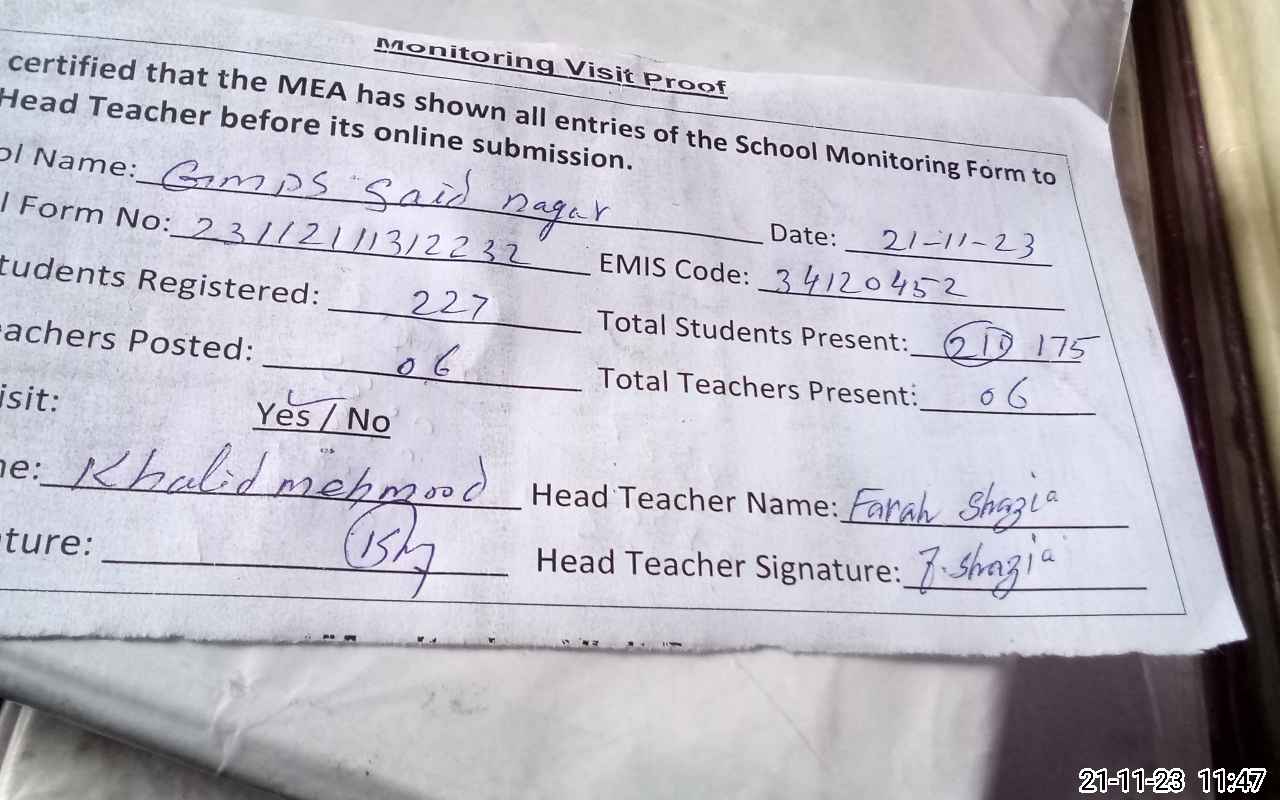 Monitoring Visit Proof
certified that the MEA has shown all entries of the School Monitoring Form to
Head Teacher before its online submission.
ol Name: Gmps Said nagar Date: 21-11-23
l Form No: 23112111312232 EMIS Code: 34120452
tudents Registered: 227 Total Students Present: 210 175
eachers Posted: 06 Total Teachers Present: 06
isit: Yes / No
ne: Khalid mehmood Head Teacher Name: Farah Shazia
ture: Head Teacher Signature: F. Shazia
21-11-23 11:47